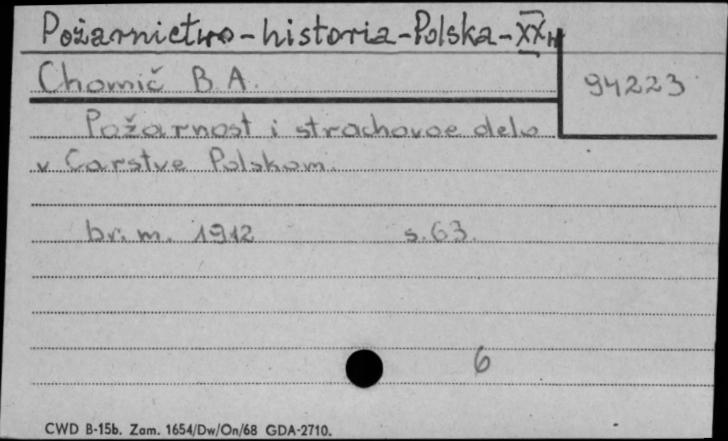 Pożarnictwo-historia-Polska-XX w
Chomič B.A.
94223
Požarnost i strachovoe delo
v Carstve Polskom.
br. m. 1912 s. 63.
6
CWD B-15b. Zam. 1654/Dw/On/68 GDA-2710.